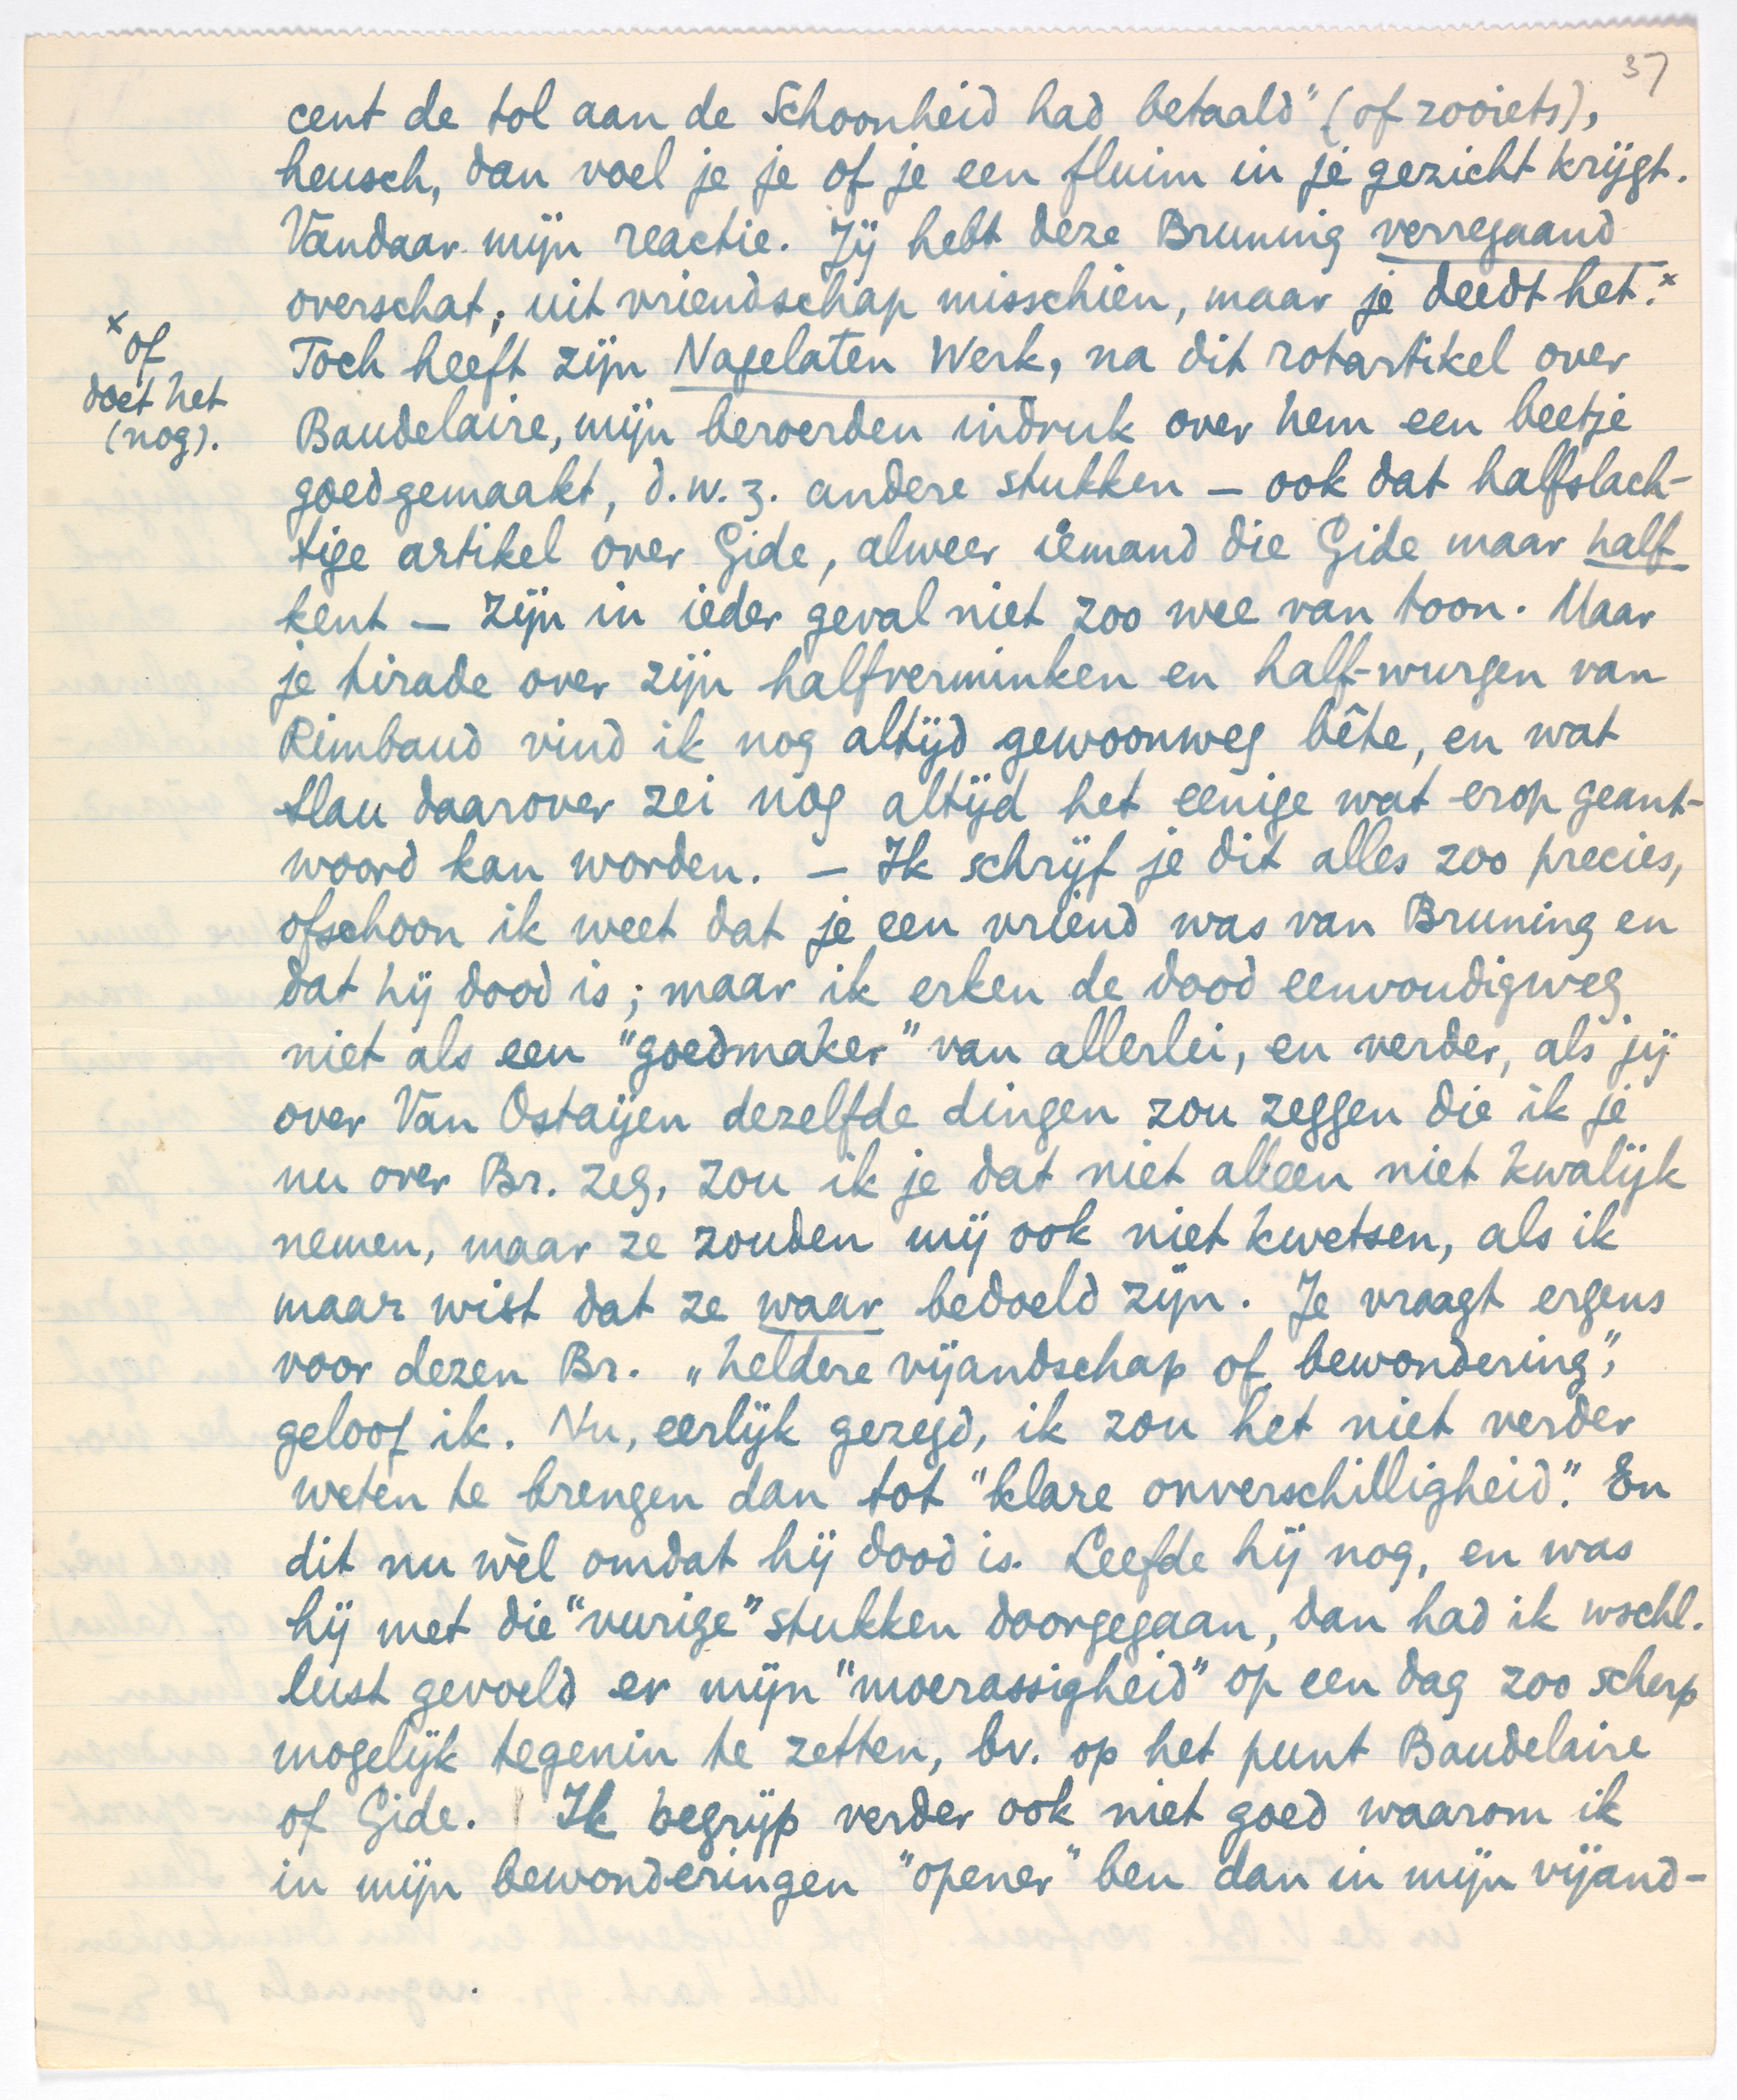 37
cent de tol aan de Schoonheid had betaald" (of zooiets),
heusch, dan voel je je of je een fluim in je gezicht krijgt.
Vandaar mijn reactie. Jij hebt deze Bruning verregaand
overschat, uit vriendschap misschien, maar je deedt het.ˣ
ˣ of
doet het
(nog).
Toch heeft zijn Nagelaten Werk, na dit rotartikel over
Baudelaire, mijn beroerden indruk over hem een beetje
goedgemaakt, d.w.z. andere stukken – ook dat halfslach-
tige artikel over Gide, alweer iemand die Gide maar half
kent – zijn in ieder geval niet zoo wee van toon. Maar
je tirade over zijn halfverminken en half-wurgen van
Rimbaud vind ik nog altijd gewoonweg bête, en wat
Slau daarover zei nog altijd het eenige wat erop geant-
woord kan worden. – Ik schrijf je dit alles zoo precies,
ofschoon ik weet dat je een vriend was van Bruning en
dat hij dood is; maar ik erken de dood eenvoudigweg
niet als een "goedmaker" van allerlei, en verder, als jij
over Van Ostaijen dezelfde dingen zou zeggen die ik je
nu over Br. zeg, zou ik je dat niet alleen niet kwalijk
nemen, maar ze zouden mij ook niet kwetsen, als ik
maar wist dat ze waar bedoeld zijn. Je vraagt ergens
voor dezen Br. „heldere vijandschap of bewondering",
geloof ik. Nu, eerlijk gezegd, ik zou het niet verder
weten te brengen dan tot "klare onverschilligheid". En
dit nu wèl omdat hij dood is. Leefde hij nog, en was
hij met die "vurige" stukken doorgegaan, dan had ik wschl.
lust gevoeld er mijn "moerassigheid" op een dag zoo scherp
mogelijk tegenin te zetten, bv. op het punt Baudelaire
of Gide. Ik begrijp verder ook niet goed waarom ik
in mijn bewonderingen "opener" ben dan in mijn vijand-